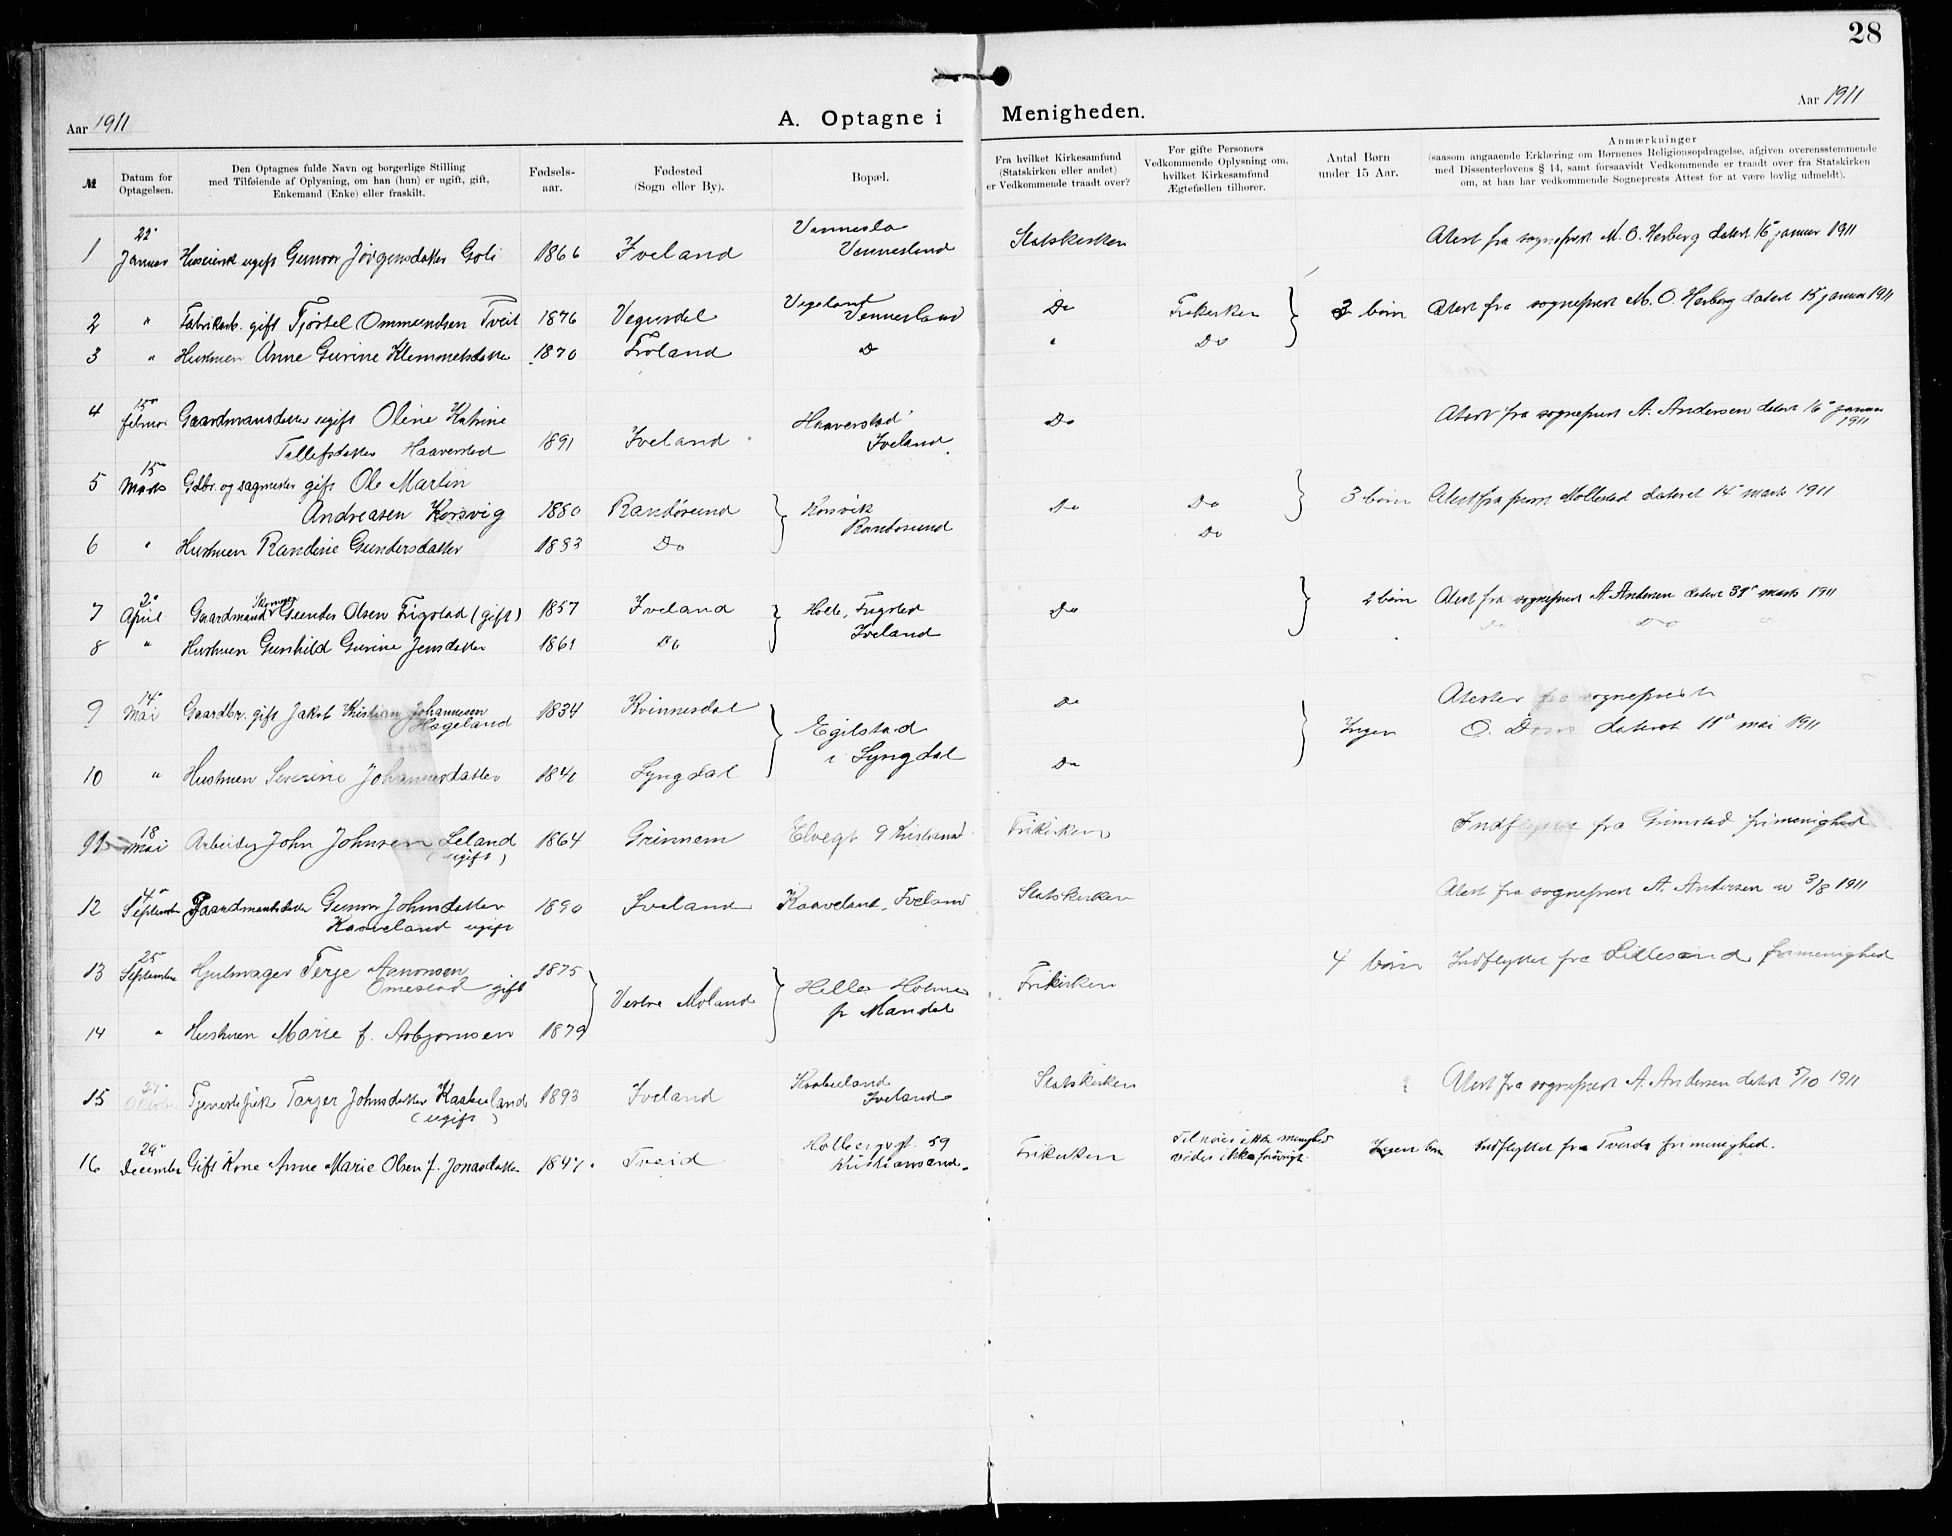 28
Aar 1911
A. Optagne i Menigheden.
Aar 1911
№
Datum for
Optagelsen.
Den Optagnes fulde Navn og borgerlige Stilling
med Tilføiende af Oplysning, om han (hun) er ugift, gift,
Enkemand (Enke) eller fraskilt.
Fødsels-
aar.
Fødested
(Sogn eller By).
Bopæl.
Fra hvilket Kirkesamfund
(Statskirken eller andet)
er Vedkommende traadt over?
For gifte Personers
Vedkommende Oplysning om,
hvilket Kirkesamfund
Ægtefællen tilhører.
Antal Børn
under 15 Aar.
Anmærkninger
(saasom angaaende Erklæring om Børnenes Religionsopdragelse, afgiven overensstemmende
med Dissenterlovens § 14, samt forsaavidt Vedkommende er traadt over fra Statskirken
om, at han har vedkommende Sogneprests Attest for at være lovlig udmeldt).
1 22 Januar ugift Gunvor Jørgensdatter Goli 1866 Iveland Vennesla Vennesland Statskirken Atest fra sogneprest M. O. Herberg datert 16 januar 1911
2 " Fabrikarb. gift Tjøstel Ommundsen Tveit 1876 Vegusdal Vigeland Vennesland Do Frikirken 3 børn Atest fra sogneprest M. O. Herberg datert 15 januar 1911
3 " Hustruen Anne Gurine Klemmetsdatter 1870 Froland Do " Do
4 15 februar Gaardmansdatter ugift Oline Katrine
Tellefsdatter Haaverstad 1891 Iveland Haaverstad Iveland Do Atest fra sogneprest A. Andersen datert 16 januar 1911
5 15 Marts Gdbr. og sagmester gift Ole Martin
Andreasen Korsvig 1880 Randøsund Korsvik Randøsund Do Do 3 børn Atest fra prest Mollestad dateret 14 marts 1911
6 " Hustruen Randine Gundersdatter 1883 Do Do
7 2 April Gaardmand Skomager Gunder Olsen Frigstad (gift) 1857 Iveland Hole, Frigstad Iveland Do 2 børn Atest fra sogneprest A. Andersen datert 31 marts 1911
8 " Hustruen Gunhild Gurine Jensdatter 1861 Do Do Do "
9 14 Mai Gaardbr. gift Jakob Kristian Johannesen
Hageland 1834 Kvinnesdal Egilstad i Lyngdal Do Ingen Atester fra sogneprest
O. dateret 11 mai 1911
10 " Hustruen Severine Johannesdatter 1840 Lyngdal Do
11 18 Mai Arbeider John Johnsen Leland
(ugift) 1864 Grinnem Elvegt 9 Kristiansand Frikirken Indflyttet fra Grimstad frimenighed
12 4 September Gaardmantsdatter Gunvor Johnsdatter
Kaaveland ugift 1890 Iveland Kaaveland, Iveland Statskirken Atest fra sogneprest A. Andersen av 3/8 1911
13 25 September Hjulmager Terje Aanonsen
Omestad gift 1875 Vestre Moland Helle Holme pr Mandal Frikirken 4 børn Indflyttet fra Lillesand frimenighed
14 " Hustruen Marie f. Asbjornsen 1879
15 27 Oktober Tjenestepike Tarjer Johnsdatter Kaabuland
(ugift) 1893 Iveland Kaabuland Iveland Statskirken Atest fra sogneprest A. Andersen datert 5/10 1911
16 29 December Gift Kone Anne Marie Olsen f. Jonasdatter 1847 Tveid Holbergsgt. 59 Kristiansand Frikirken Tilhører ikke menighed
vides ikke forøvrigt. Ingen børn Indflyttet fra Tveide frimenighed.